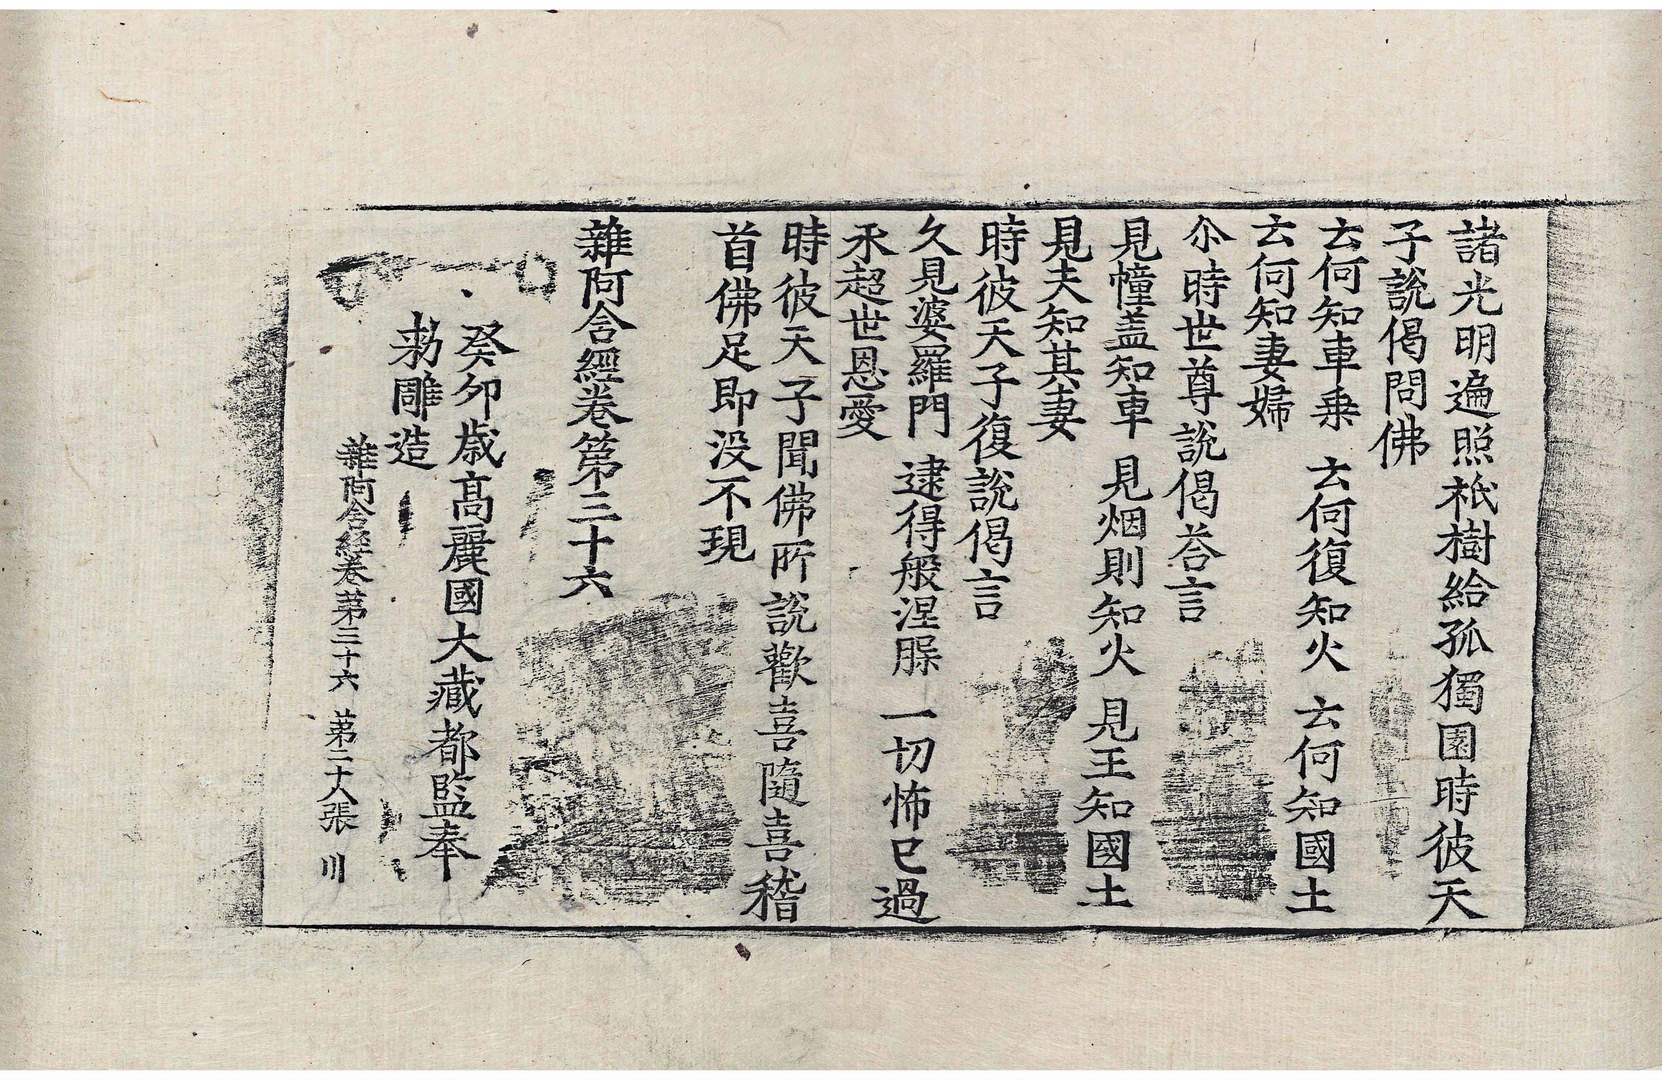 諸光明遍照祇樹給孤獨園時彼天
子說偈問佛
云何知車乗 云何復知火 云何知國土
云何知妻婦
尒時世尊說偈荅言
見幢盖知車 見烟則知火 見王知國土
見夫知其妻
時彼天子復說偈言
久見婆羅門 逮得般涅槃 一切怖已過
永超世恩愛
時彼天子聞佛所說歡喜隨喜稽
首佛足即没不現
雜阿含經卷第三十六
癸卯歲高麗國大藏都監奉
勑雕造
雜阿含経卷第三十六 第二十八張 川